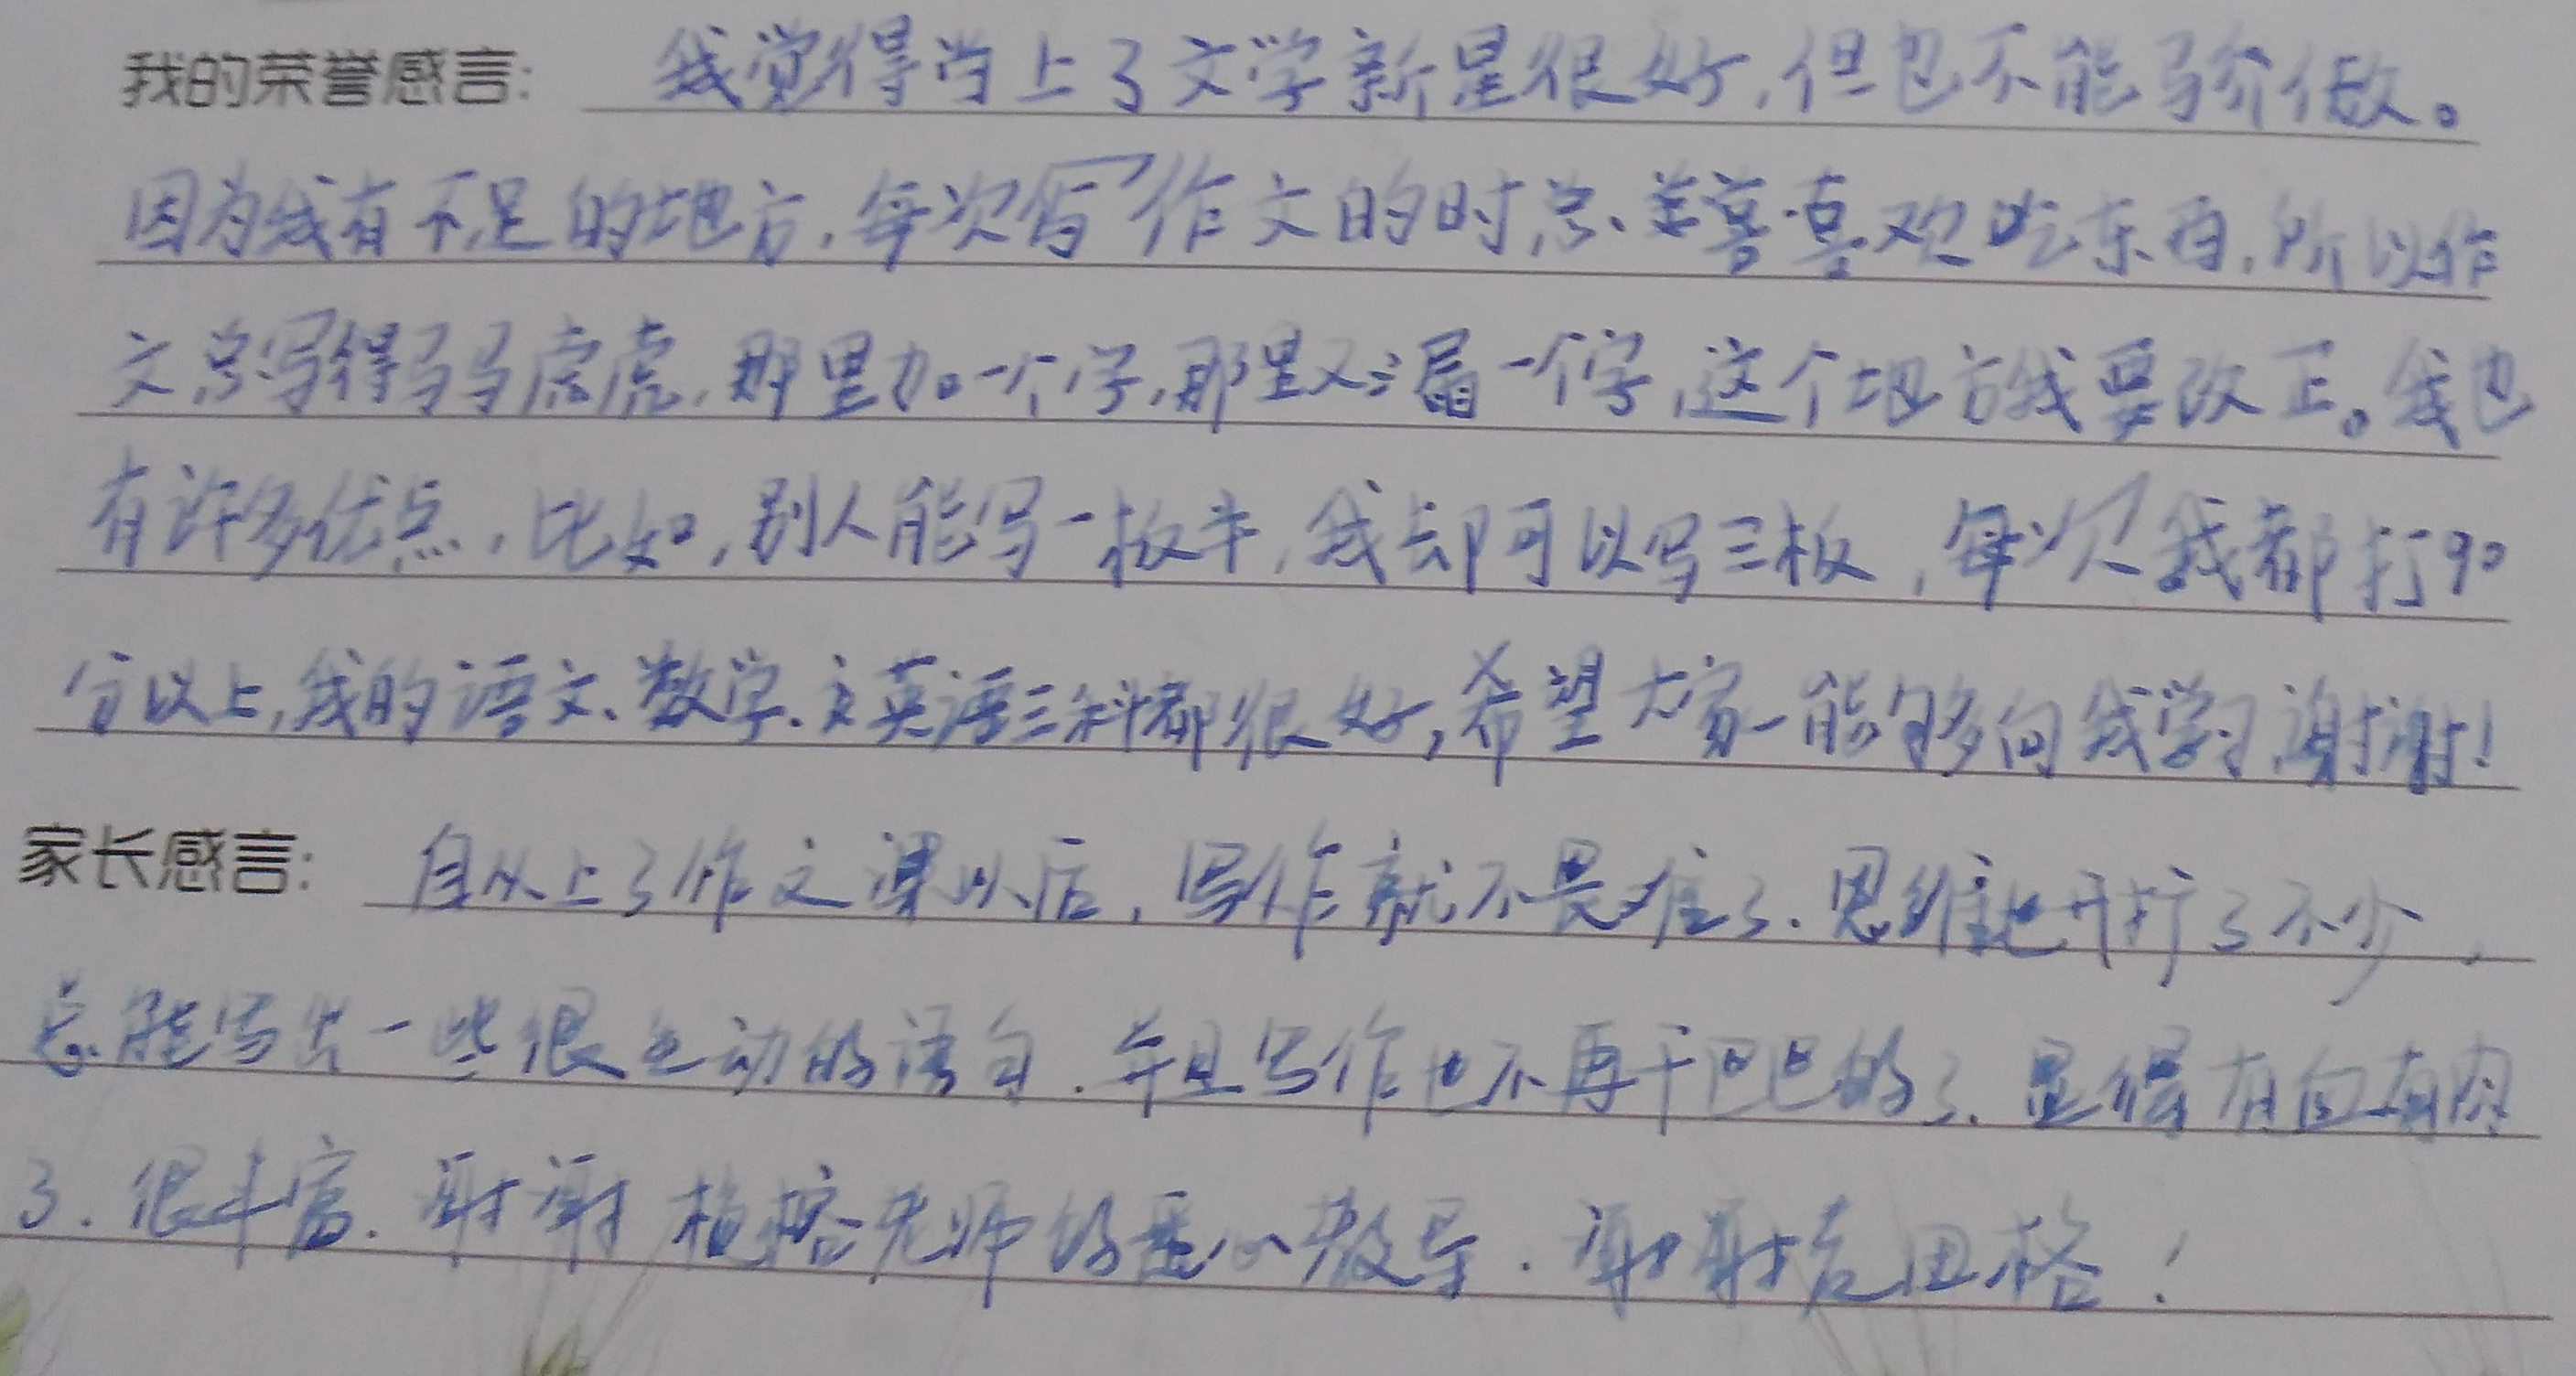 我的荣誉感言: 我觉得当上了文学新星很好,但也不能骄傲。
因为我有不足的地方,每次写作文的时总、喜欢吃东西,所以作
文总写得马马虎虎,那里加一个字,那里又漏一个字,这个地方我要改正。我也
有许多优点,比如,别人能写一板半,我却可以写三板,每次我都打90
分以上,我的语文、数学、英语三科都很好,希望大家能够向我学习,谢谢!
家长感言: 自从上了作文课以后,写作就不畏难了.思维也开扩了不少,
总能写出一些很生动的语句.并且写作也不再干巴巴的了.显得有血有肉
了.很丰富.谢谢老师的悉心教导.谢谢麦田格!